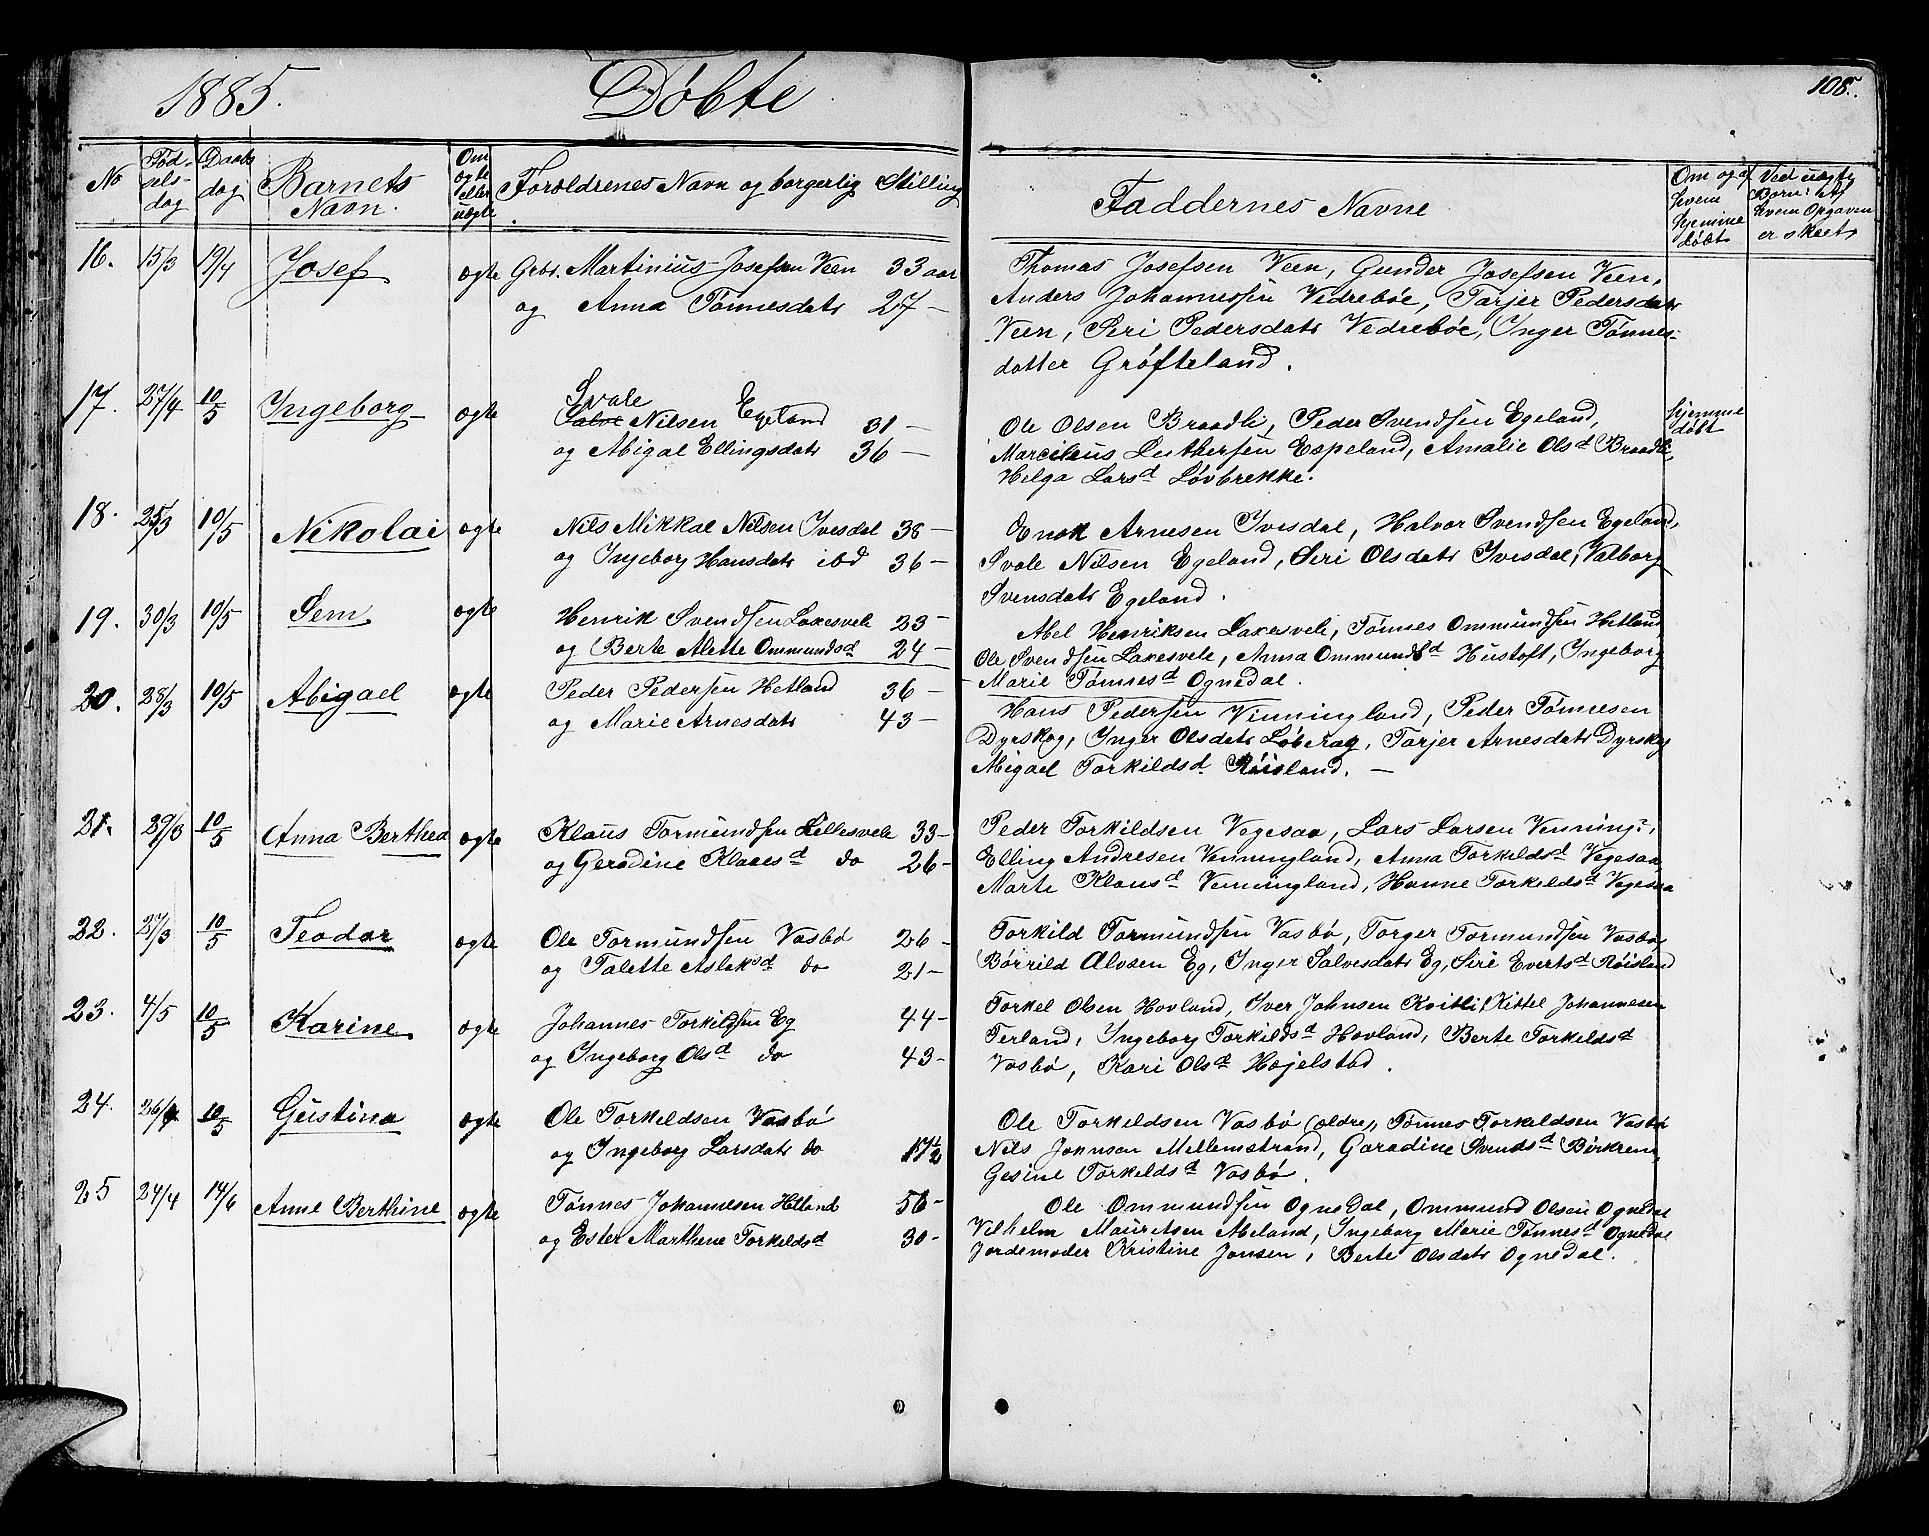 1885. Døbte 108.
No Fød- Daabs Barnets Om Forældrenes Navn og borgerlig Stilling Faddernes Navne Om og af Ved uægte
sels- dag Navn. ægte hvem Børn: af
dag eller hjemme hvem Opgaven
uægte døbt er skeet
16. 15/3 19/4 Josef ægte Grbr. Martinius Josefsen Veen 33 aar Thomas Josefsen Veen, Gunder Josefsen Veen,
og Anna Tønnesdatr 27 - Anders Johannessen Vedrebøe, Tarjer Pedersdatr
Veen, Seri Pedersdatr Vedrebøe, Inger Tønnes-
datter Grøfteland.
17. 27/4 10/5 Ingeborg ægte Svale
Salve Nilsen Egeland 31 - Ole Olsen Braadli, Peder Svendsen Egeland, hjemme
og Abigal Ellingsdatr 36 - Marcilius Luthersen Espeland, Amalie Olsd Braadli, døbt
Helga Larsd Løvbrekke.
18. 25/3 10/5 Nikolai ægte Nils Mikkal Nilsen Ivesdal 38 - Enok Arnesen Ivesdal, Halvor Svendsen Egeland,
og Ingeborg Hansdatr ibd 36 - Svale Nilsen Egeland, Seri Olsdatr Ivesdal, Valborg
Svensdatr Egeland.
19. 30/3 10/5 Sem ægte Henrik Svendsen Laxesvele 23 - Abel Henriksen Laxesvele, Tønnes Ommundsen Hetland
og Berte Alette Ommundsd 24 - Ole Svendsen Laxesvele, Anna Ommundsd Hustoft, Ingeborg
Marie Tønnesd Ognedal.
20. 28/3 10/5 Abigael ægte Peder Pedersen Hetland 36 - Hans Pedersen Vinningland, Peder Tønnesen
og Marie Arnesdatr 43 - Dyrskog, Inger Olsdatr, Tarjer Arnesdatr Dyrskog
Abigael Torkildsd Røisland. -
21. 29/3 10/5 Anna Berthea ægte Klaus Tormundsen Lillesvele 33 - Peder Torkildsen Vegesaa, Lars Larsen Venning:,
og Geradine Klausd do 26 - Elling Andresen Venningland, Anna Torkildsd Vegesaa
Marte Klausd Venningland, Hanne Torkildsd Vegesaa
22. 27/3 10/5 Teodor ægte Ole Tormundsen Vasbø 26 - Torkild Tormundsen Vasbø, Torger Tormundsen Vasbø,
og Talette Aslaksd do 21 - Børrild Alvsen Eg, Inger Salvesdatr Eg, Siri Evertsd Røisland
23. 4/5 10/5 Karine ægte Johannes Torkildsen Eg 44 - Torkel Olsen Hovland, Iver Johnsen Kvitli, Kittel Johannesen
og Ingeborg Olsd do 43 - Terland, Ingeborg Torkildsd Hovland, Berte Torkildsd
Vasbø, Kari Olsd Højelstad.
24. 26/4 10/5 Gustina ægte Ole Torkeldsen Vasbø Ole Torkeldsen Vasbø (ældre), Tønnes Torkeldsen Vasbø
og Ingeborg Larsdatr do 17½ Nils Johnsen Mellemstrand, Garadine Svendsd Birkrem,
Gesine Torkeldsd Vasbø.
25 24/4 14/6 Anne Berthine ægte Tønnes Johannesen Hetland 56 - Ole Ommundsen Ognedal, Ommund Olsen Ognedal
og Ester Marthene Torkildsd 30 - Vilhelm Mauritsen Meland, Ingeborg Marie Tønnesd Ognedal
Jordemoder Kristine Jonsen, Berte Olsdatr Ognedal.